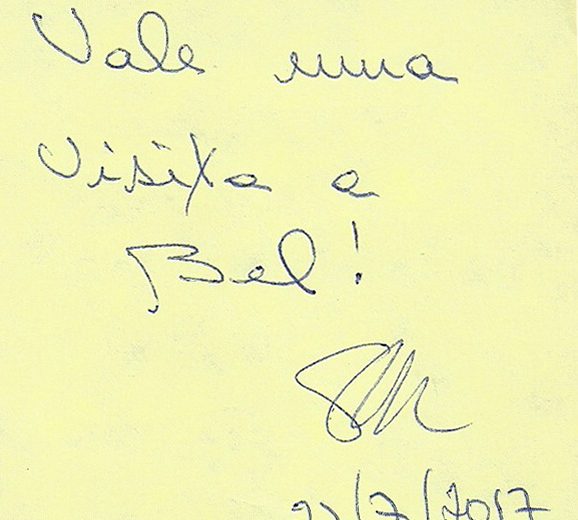 Vale uma
visita a
Bel!
22/7/2017